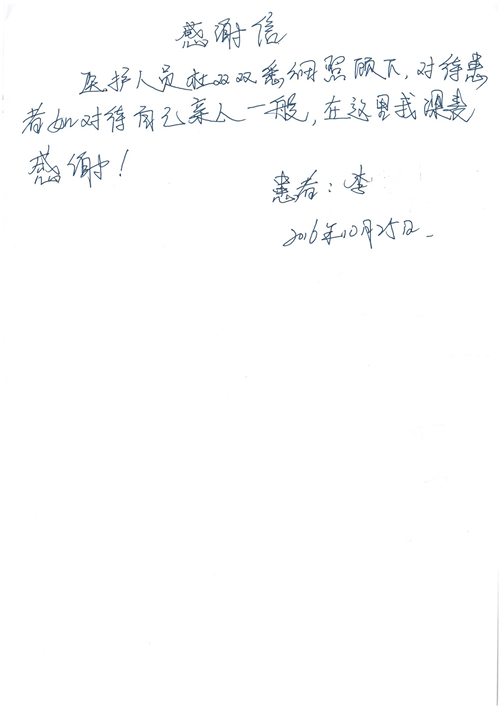 感谢信
医护人员杜双双悉细照顾下,对待患
者如对待自己亲人一般,在这里我深表
感谢!
患者:李
2016年10月25日.